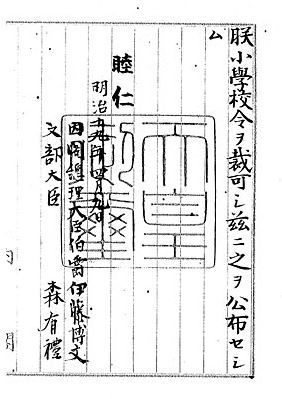 朕小學校令ヲ裁可シ茲ニ之ヲ公布セシ
ム
睦仁
明治十九年四月九日
内閣總理大臣伯爵伊藤博文
文部大臣　森有禮
内閣